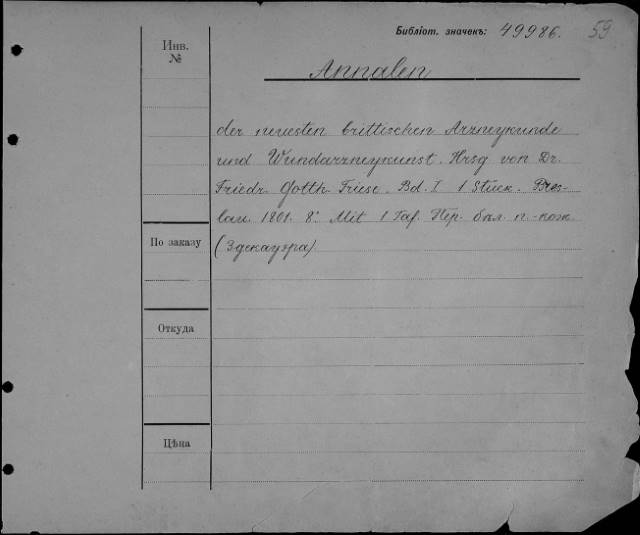 Библіот. значекъ: 49986. 59
Инв.
№
Annalen
der neuesten brittischen Arzneykunde
und Wundarzneykunst. Hrsg von Dr.
Friedr. Gotth. Friese. Bd. I 1 Stück. Bres-
lau 1801. 8º. Mit 1 Taf. Пер. бѣл. п.-кож.
По заказу
(Здекауэра)
Откуда
Цѣна